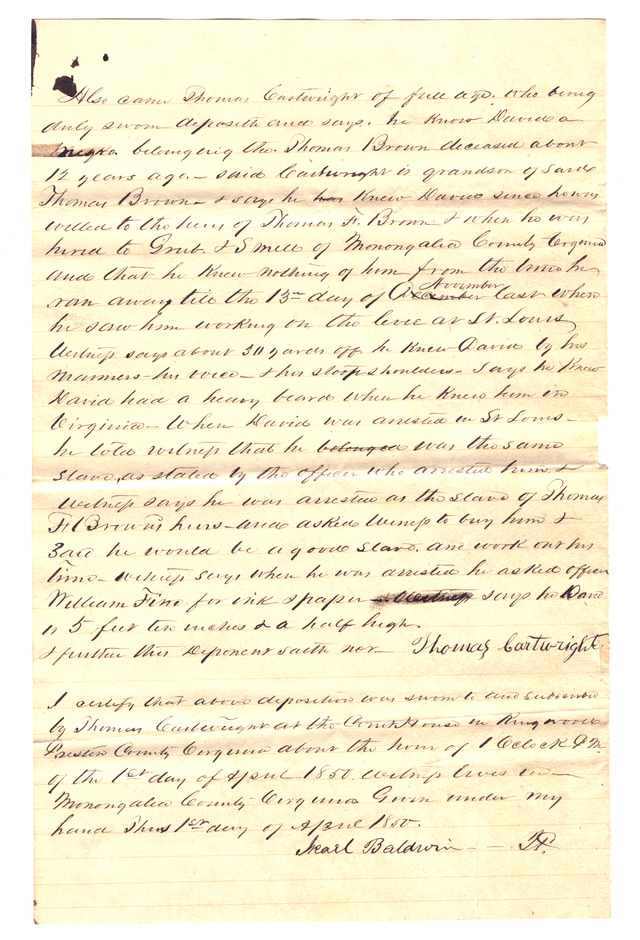 Also came Thomas Cartwright of full age. who being
duly sworn deposeth and says. he Knew David a
negro belonging the. Thomas Brown deceased about
12 years ago. - said Cartwright is grandson of said
Thomas Brown - & says he has Knew David since he was
willed to the heirs of Thomas F. Brown - & when he was
hired to Grub. & Smell of Monongalia County Virginia
and that he Knew nothing of him from the time he
ran away till the 13th day of November last when
he saw him working on the levee at St. Louis
Witness says about 30 yards off he Knew David by his
manners - his voice - & his stoop shoulders - says he Knew
David had a heavy beard when he Knew him in
Virginia - When David was arrested in St Louis -
he told witness that he belonged was the same
slave, as stated by the officer who arrested him. &
witness says he was arrested as the slave of Thomas
F. Brown's heirs - and asked witness to buy him &
Said he would be a good slave. and work out his
time - witness says when he was arrested he asked officer
William Fine for ink & paper & Witness says he David
is 5 feet ten inches & a half high.
& further this Deponent saith not - Thomas Cartwright
I certify that above deposition was sworn to and subscribed
by Thomas Cartwright at the Court House in Kingwood
Preston County Virginia about the hour of 1 Oclock P.M.
of the 1st day of April 1850. witness lives in
Monongalia County Virginia Given under my
hand This 1st day of April 1850.
Baldwin - - JP.